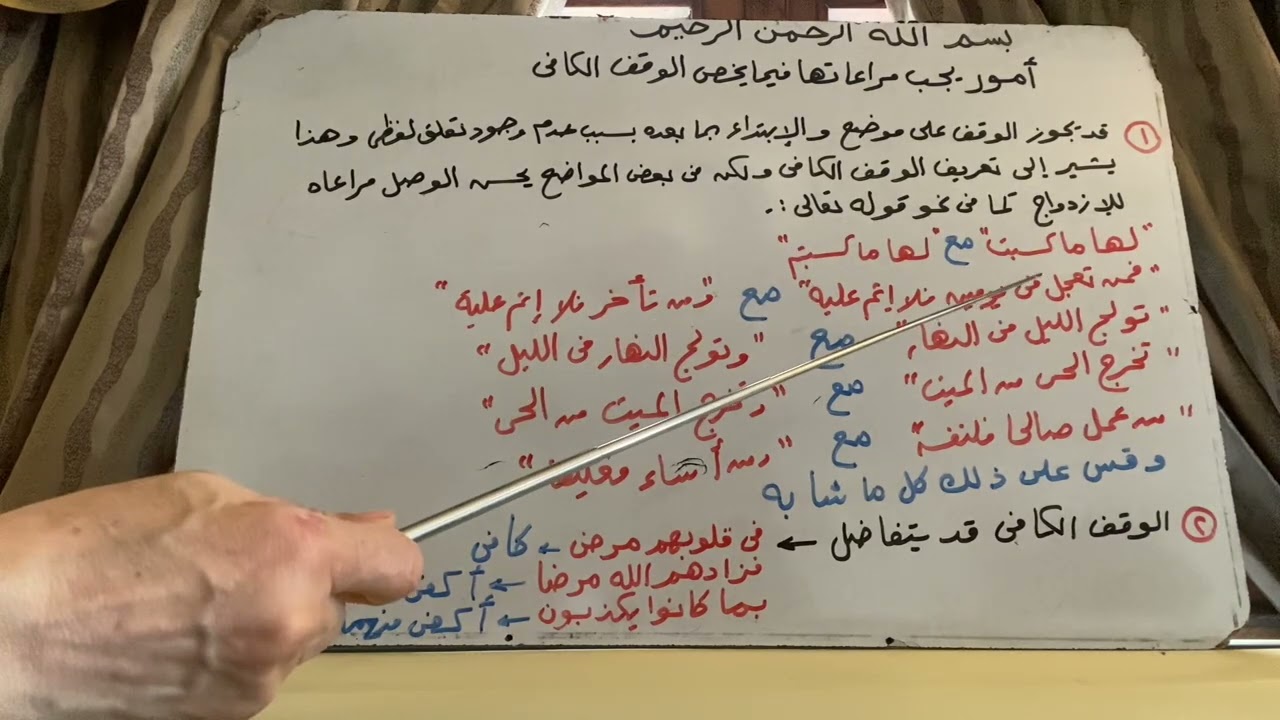 بسم الله الرحمن الرحيم
أمور يجب مراعاتها فيما يخص الوقف الكافى
① قد يجوز الوقف على موضع والإبتداء بما بعده بسبب عدم وجود تعلق لفظى وهذا
يشير إلى تعريف الوقف الكافى ولكن فى بعض المواضع يحسن الوصل مراعاه
للإزدواج كما فى نحو قوله تعالى :.
"لها ما كسبت" مع "لها ما كسبتم"
"فمن تعجل فى يومين فلا إثم عليه" مع "ومن تأخر فلا إثم عليه"
"تولج الليل فى النهار" مع "وتولج النهار فى الليل"
"تخرج الحى من الميت" مع "وتخرج الميت من الحى"
"من عمل صالحا فلنفسه" مع "ومن أساء فعليها"
وقس على ذلك كل ما شابه
② الوقف الكافى قد يتفاضل ← فى قلوبهم مرض ← كافى
فزادهم الله مرضا ← أكفى
بما كانوا يكذبون ← أكفى منهما